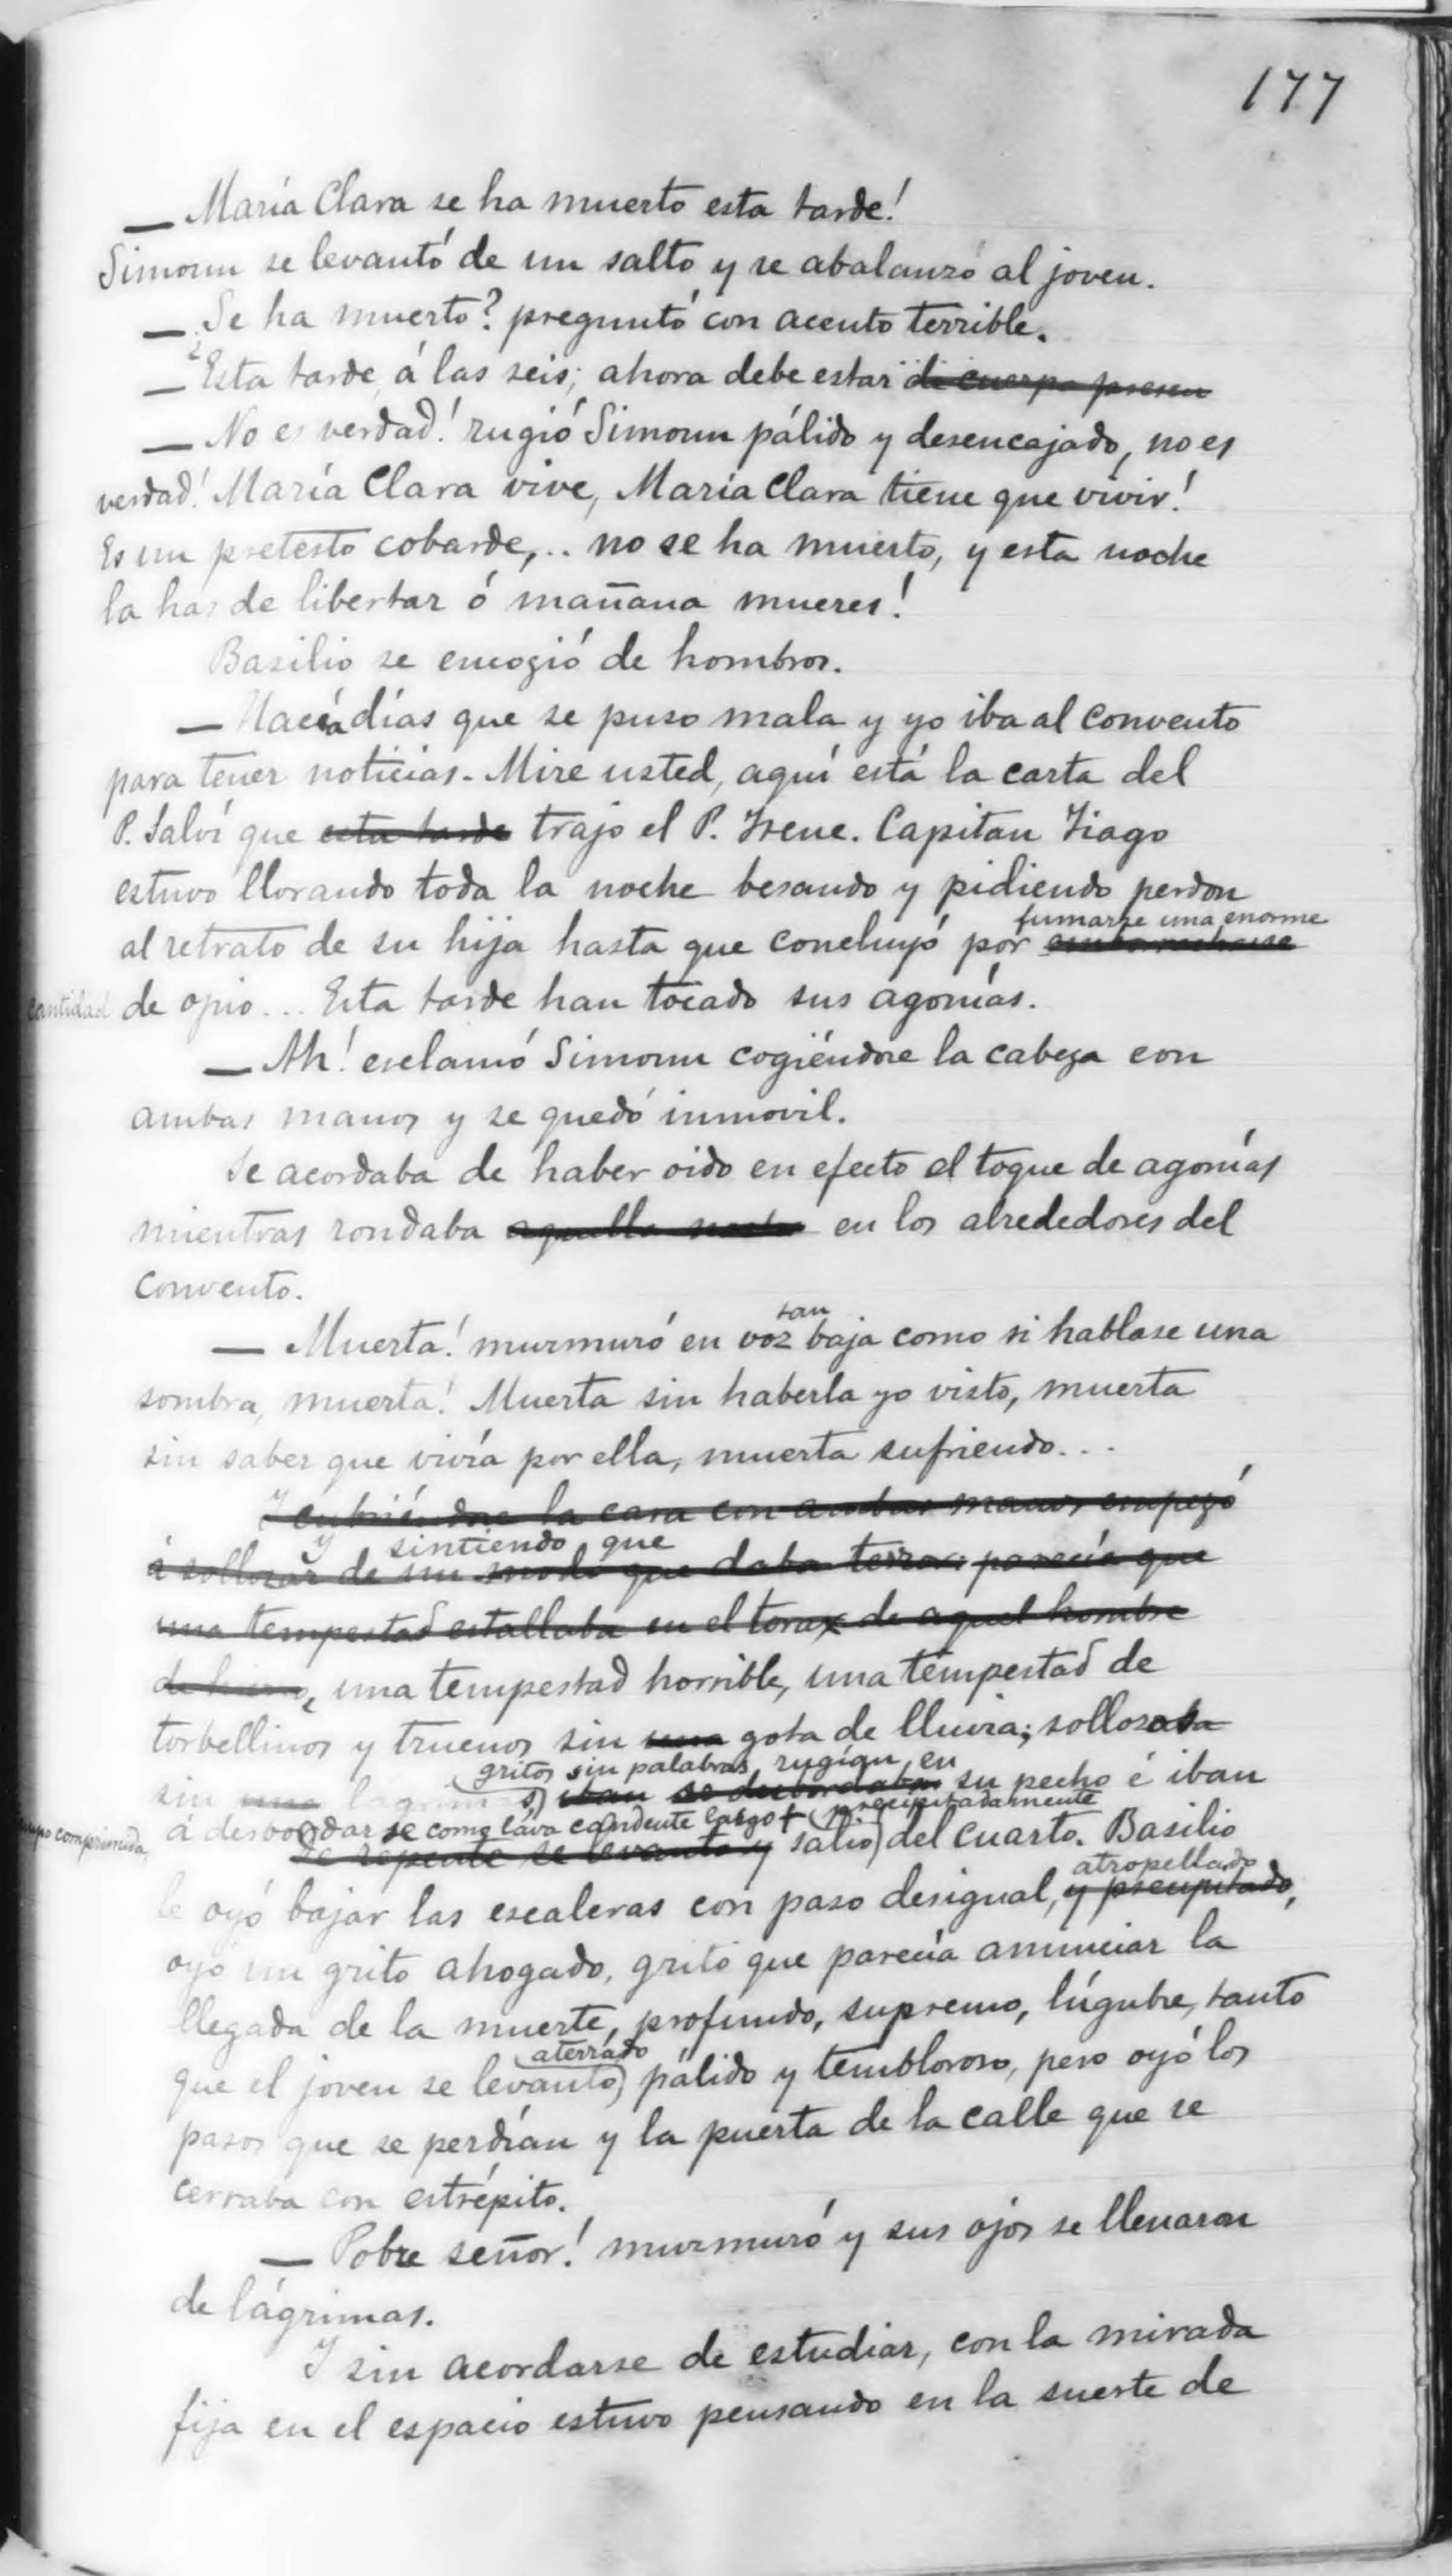 177
— María Clara se ha muerto esta tarde!
Simoun se levantó de un salto y se abalanzó al joven.
— ¿Se ha muerto? preguntó con acento terrible.
— Esta tarde, á las seis; ahora debe estar de cuerpo presen
— No es verdad! rugió Simoun pálido y desencajado, no es
verdad! María Clara vive, María Clara tiene que vivir!
Es un pretesto cobarde,.. no se ha muerto, y esta noche
la has de libertar ó mañana mueres!
Basilio se encogió de hombros.
— Hacía días que se puso mala y yo iba al convento
para tener noticias. Mire usted, aquí está la carta del
P. Salví que esta tarde trajo el P. Irene. Capitan Tiago
estuvo llorando toda la noche besando y pidiendo perdon
fumarse una enorme
al retrato de su hija hasta que concluyó por emborracharse
cantidad de opio... Esta tarde han tocado sus agonías.
— Ah! esclamó Simoun cogiéndose la cabeza con
ambas manos y se quedó inmovil.
Se acordaba de haber oido en efecto el toque de agonías
mientras rondaba aquella noche en los alrededores del
convento.
tan
— Muerta! murmuró en voz baja como si hablase una
sombra, muerta! Muerta sin haberla yo visto, muerta
sin saber que vivía por ella, muerta sufriendo...
Y cubriéndose la cara con ambas manos empezó
y sintiendo que
á sollozar de un modo que daba terror: parecía que
una tempestad estallaba en el torax de aquel hombre
de hierro, una tempestad horrible, una tempestad de
torbellinos y truenos sin una gota de lluvia; sollozaba
gritos sin palabras, rugían en
sin una lagrimas iban se desbordaban su pecho é iban
precipitadamente
á desbordarse como lava candente largo
tiempo comprimida,
de repente se levantó y salió del cuarto. Basilio
atropellado
le oyó bajar las escaleras con paso desigual, y precipitado,
oyó un grito ahogado, grito que parecía anunciar la
llegada de la muerte, profundo, supremo, lúgubre, tanto
aterrado
que el joven se levantó pálido y tembloroso, pero oyó los
pasos que se perdían y la puerta de la calle que se
cerraba con estrépito.
— Pobre señor! murmuró y sus ojos se llenaron
de lágrimas.
Y sin acordarse de estudiar, con la mirada
fija en el espacio estuvo pensando en la suerte de